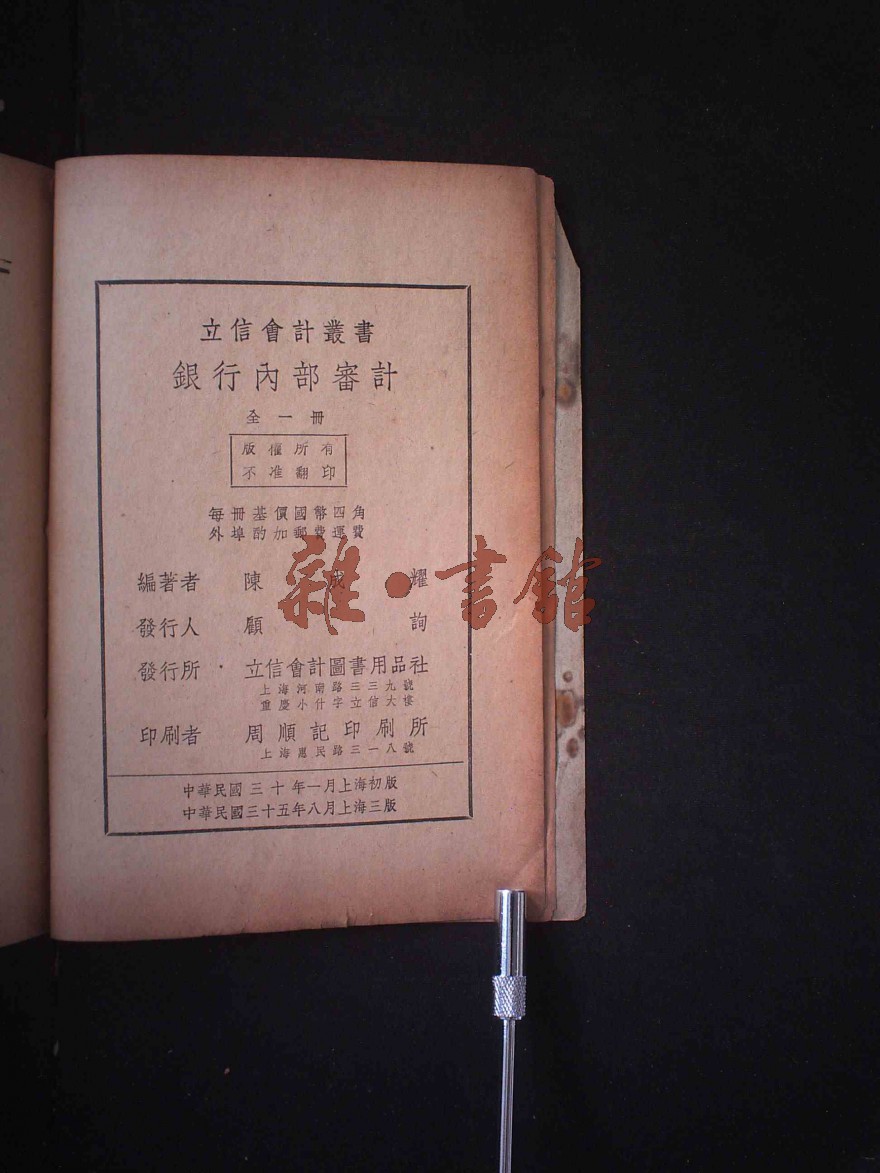 立信會計叢書
銀行內部審計
全一冊
版權所有
不准翻印
每冊基價國幣四角
外埠酌加郵費運費
編著者 陳成耀
發行人 顧詢
發行所 立信會計圖書用品社
上海河南路三三九號
重慶小什字立信大樓
印刷者 周順記印刷所
上海惠民路三一八號
中華民國三十年一月上海初版
中華民國三十五年八月上海三版
雜·書館